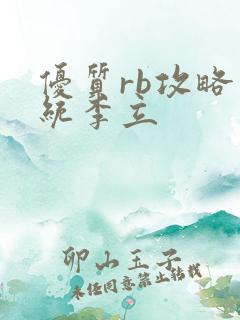 優質rb攻略
統李立
卯山玉子
未経同意禁止转载